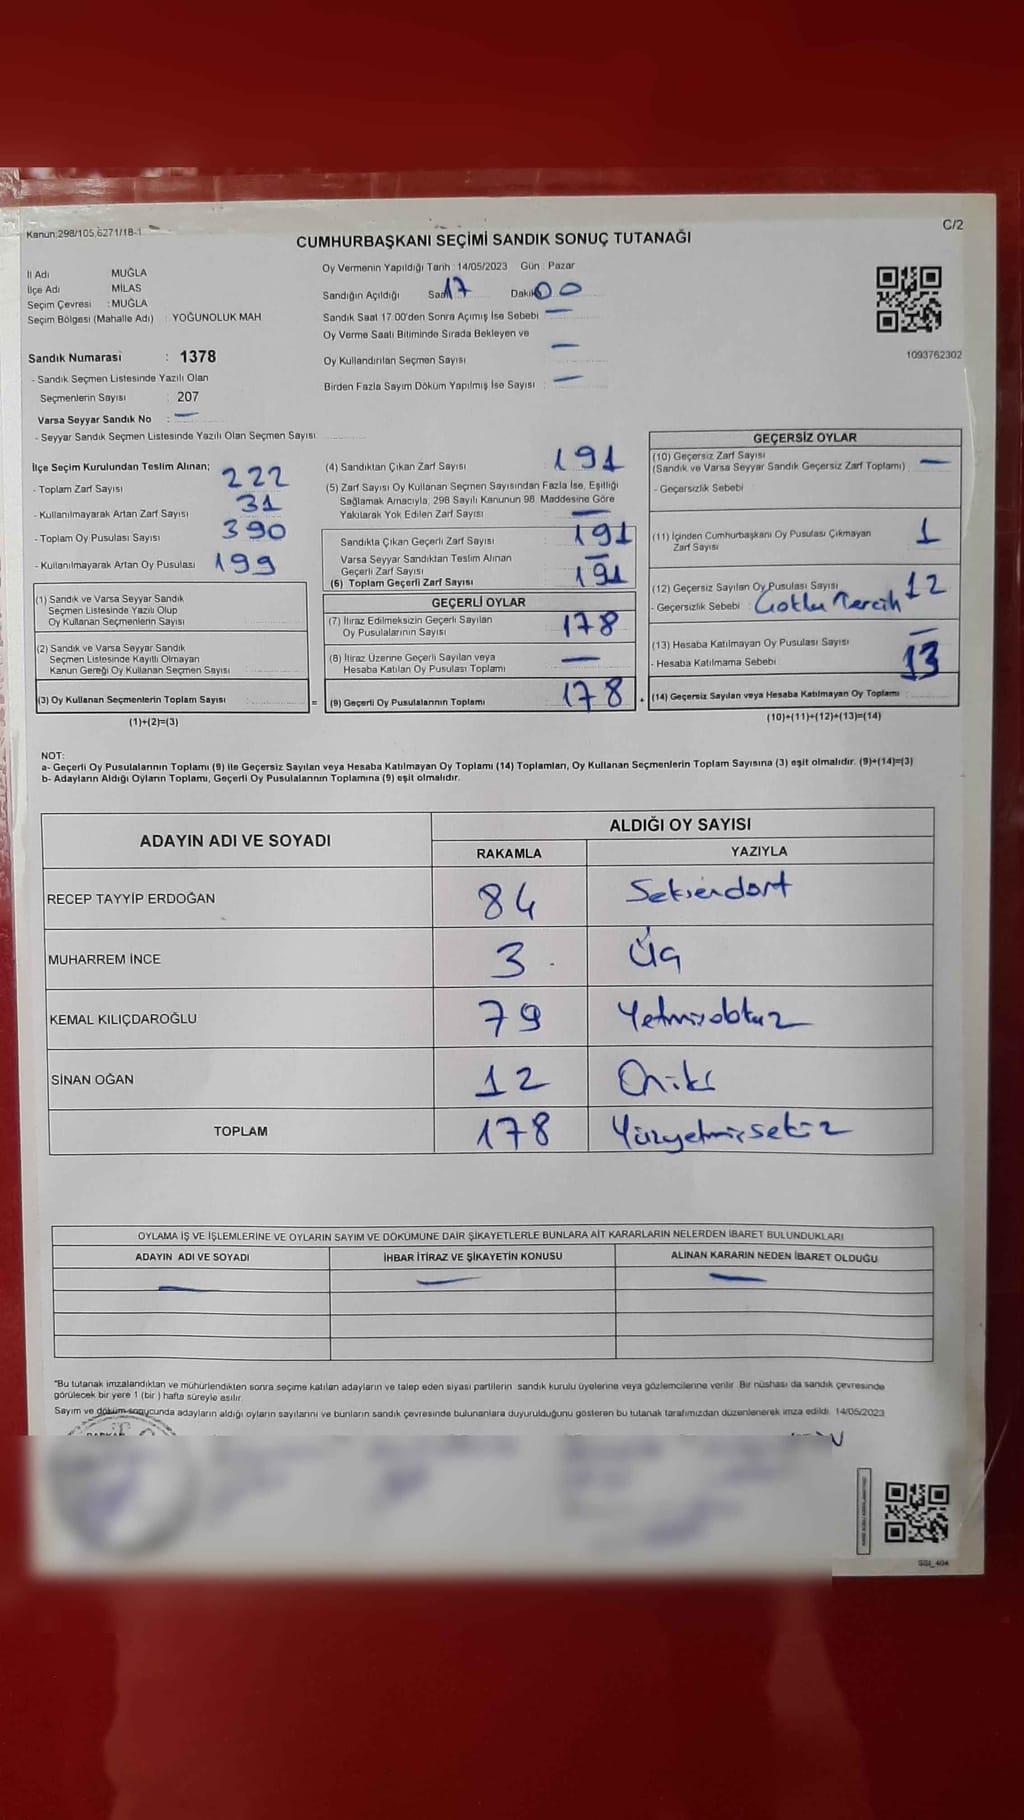 Kanun;298/105,6271/18-1
C/2
CUMHURBAŞKANI SEÇİMİ SANDIK SONUÇ TUTANAĞI
İl Adı MUĞLA
İlçe Adı MİLAS
Seçim Çevresi : MUĞLA
Seçim Bölgesi (Mahalle Adı) : YOĞUNOLUK MAH
Sandık Numarası : 1378
- Sandık Seçmen Listesinde Yazılı Olan
Seçmenlerin Sayısı : 207
Varsa Seyyar Sandık No : —
- Seyyar Sandık Seçmen Listesinde Yazılı Olan Seçmen Sayısı:
Oy Vermenin Yapıldığı Tarih : 14/05/2023 Gün : Pazar
Sandığın Açıldığı Saat 17 Dakika 00
Sandık Saat 17.00'den Sonra Açımış İse Sebebi —
Oy Verme Saati Bitiminde Sırada Bekleyen ve
Oy Kullandırılan Seçmen Sayısı —
Birden Fazla Sayım Döküm Yapılmış İse Sayısı : —
1093762302
İlçe Seçim Kurulundan Teslim Alınan;
- Toplam Zarf Sayısı 222
- Kullanılmayarak Artan Zarf Sayısı 31
- Toplam Oy Pusulası Sayısı 390
- Kullanılmayarak Artan Oy Pusulası 199
(1) Sandık ve Varsa Seyyar Sandık
Seçmen Listesinde Yazılı Olup
Oy Kullanan Seçmenlerin Sayısı
(2) Sandık ve Varsa Seyyar Sandık
Seçmen Listesinde Kayıtlı Olmayan
Kanun Gereği Oy Kullanan Seçmen Sayısı
(3) Oy Kullanan Seçmenlerin Toplam Sayısı =
(1)+(2)=(3)
(4) Sandıktan Çıkan Zarf Sayısı : 191
(5) Zarf Sayısı Oy Kullanan Seçmen Sayısından Fazla İse, Eşitliği
Sağlamak Amacıyla, 298 Sayılı Kanunun 98. Maddesine Göre
Yakılarak Yok Edilen Zarf Sayısı —
Sandıkta Çıkan Geçerli Zarf Sayısı 191
Varsa Seyyar Sandıktan Teslim Alınan
Geçerli Zarf Sayısı —
(6) Toplam Geçerli Zarf Sayısı 191
GEÇERLİ OYLAR
(7) İtiraz Edilmeksizin Geçerli Sayılan
Oy Pusulalarının Sayısı 178
(8) İtiraz Üzerine Geçerli Sayılan veya
Hesaba Katılan Oy Pusulası Toplamı —
(9) Geçerli Oy Pusulalarının Toplamı 178
GEÇERSİZ OYLAR
(10) Geçersiz Zarf Sayısı
(Sandık ve Varsa Seyyar Sandık Geçersiz Zarf Toplamı) —
- Geçersizlik Sebebi
(11) İçinden Cumhurbaşkanı Oy Pusulası Çıkmayan
Zarf Sayısı 1
(12) Geçersiz Sayılan Oy Pusulası Sayısı 12
- Geçersizlik Sebebi : Çoklu Tercih
(13) Hesaba Katılmayan Oy Pusulası Sayısı —
- Hesaba Katılmama Sebebi :
(14) Geçersiz Sayılan veya Hesaba Katılmayan Oy Toplamı 13
(10)+(11)+(12)+(13)=(14)
NOT:
a- Geçerli Oy Pusulalarının Toplamı (9) ile Geçersiz Sayılan veya Hesaba Katılmayan Oy Toplamı (14) Toplamları, Oy Kullanan Seçmenlerin Toplam Sayısına (3) eşit olmalıdır. (9)+(14)=(3)
b- Adayların Aldığı Oyların Toplamı, Geçerli Oy Pusulalarının Toplamına (9) eşit olmalıdır.
ADAYIN ADI VE SOYADI ALDIĞI OY SAYISI
RAKAMLA YAZIYLA
RECEP TAYYİP ERDOĞAN 84 Seksendört
MUHARREM İNCE 3 Üç
KEMAL KILIÇDAROĞLU 79 Yetmişdokuz
SİNAN OĞAN 12 Oniki
TOPLAM 178 Yüzyetmişsekiz
OYLAMA İŞ VE İŞLEMLERİNE VE OYLARIN SAYIM VE DÖKÜMÜNE DAİR ŞİKAYETLERLE BUNLARA AİT KARARLARIN NELERDEN İBARET BULUNDUKLARI
ADAYIN ADI VE SOYADI İHBAR İTİRAZ VE ŞİKAYETİN KONUSU ALINAN KARARIN NEDEN İBARET OLDUĞU
— — —
*Bu tutanak imzalandıktan ve mühürlendikten sonra seçime katılan adayların ve talep eden siyasi partilerin sandık kurulu üyelerine veya gözlemcilerine verilir. Bir nüshası da sandık çevresinde
görülecek bir yere 1 (bir ) hafta süreyle asılır.
Sayım ve döküm sonucunda adayların aldığı oyların sayılarını ve bunların sandık çevresinde bulunanlara duyurulduğunu gösteren bu tutanak tarafımızdan düzenlenerek imza edildi. 14/05/2023
SSI_404